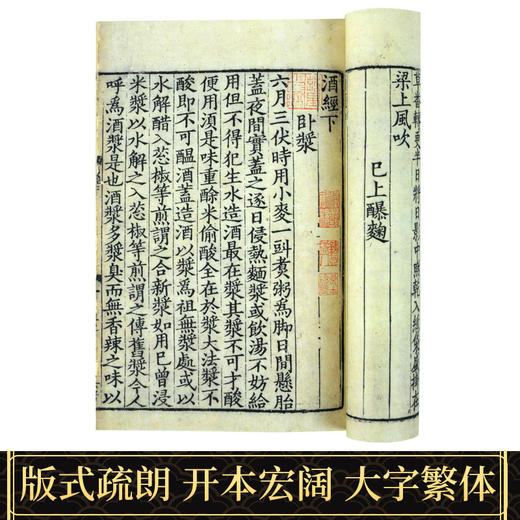 梁上風吹
巳上䤖麴
酒經下
卧漿
六月三伏時用小麥一㪷煑粥爲脚日間懸胎
蓋夜間實蓋之逐日侵熱麵漿或飲湯不妨給
用但不得犯生水造酒最在漿其漿不可才酸
便用須是味重酴米偷酸全在於漿大法漿不
酸即不可醖酒蓋造酒以漿爲祖無漿處或以
水解醋入葱椒等煎謂之合新漿如用巳曾浸
米漿以水解之入葱椒等煎謂之傳舊漿今人
呼爲酒漿是也酒漿多漿臭而無香辣之味以
版式疏朗 开本宏阔 大字繁体